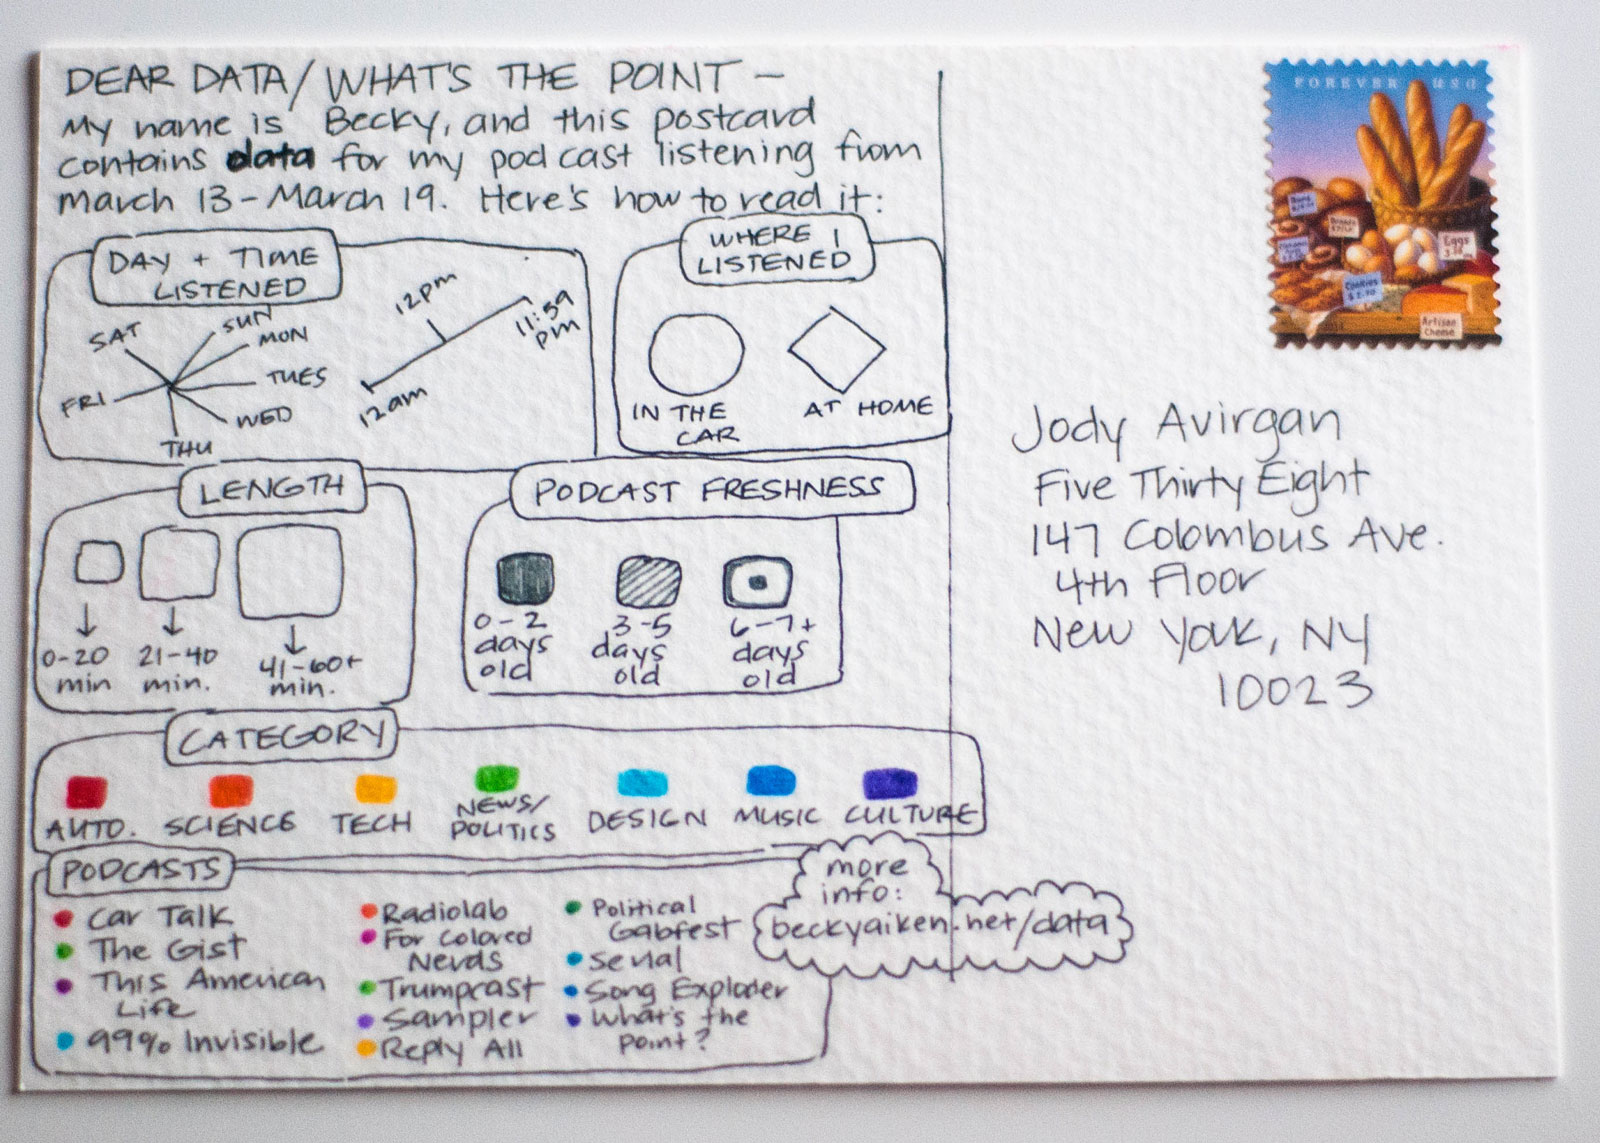 DEAR DATA/WHAT'S THE POINT –
My name is Becky, and this postcard
contains data for my podcast listening from
march 13 – March 19. Here's how to read it:
DAY + TIME
LISTENED
SAT
SUN
MON
TUES
WED
THU
FRI
12pm
11:59
pm
12am
WHERE I
LISTENED
IN THE
CAR
AT HOME
LENGTH
0-20
min
21-40
min.
41-60+
min.
PODCAST FRESHNESS
0-2
days
old
3-5
days
old
6-7+
days
old
CATEGORY
AUTO.
SCIENCE
TECH
NEWS/
POLITICS
DESIGN
MUSIC
CULTURE
PODCASTS
Car Talk
The Gist
This American
Life
99% Invisible
Radiolab
For Colored
Nerds
Trumpcast
Sampler
Reply All
Political
Gabfest
Serial
Song Exploder
What's the
Point?
more
info:
beckyaiken.net/data
FOREVER USA
Eggs
Cookies
Artisan
Cheese
Jody Avirgan
Five Thirty Eight
147 Colombus Ave.
4th Floor
New York, NY
10023